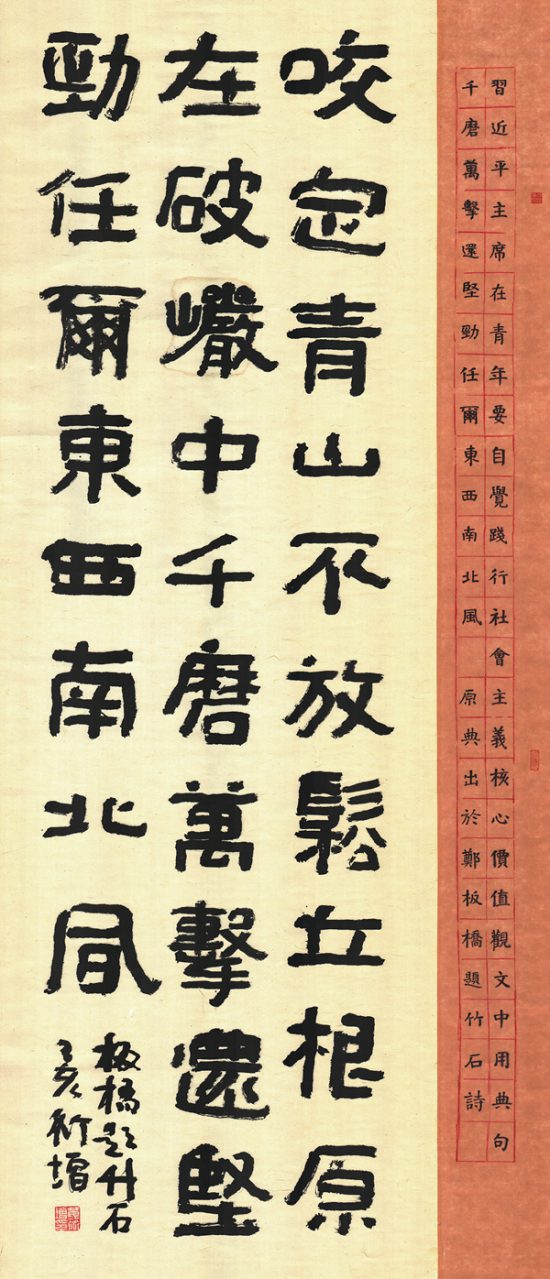 習近平主席在青年要自覺踐行社會主義核心價值觀文中用典句
千磨萬擊還堅勁任爾東西南北風 原典出於鄭板橋題竹石詩
咬定青山不放鬆立根原
在破巗中千磨萬擊還堅
勁任爾東西南北風
板橋題竹石
己亥衍增